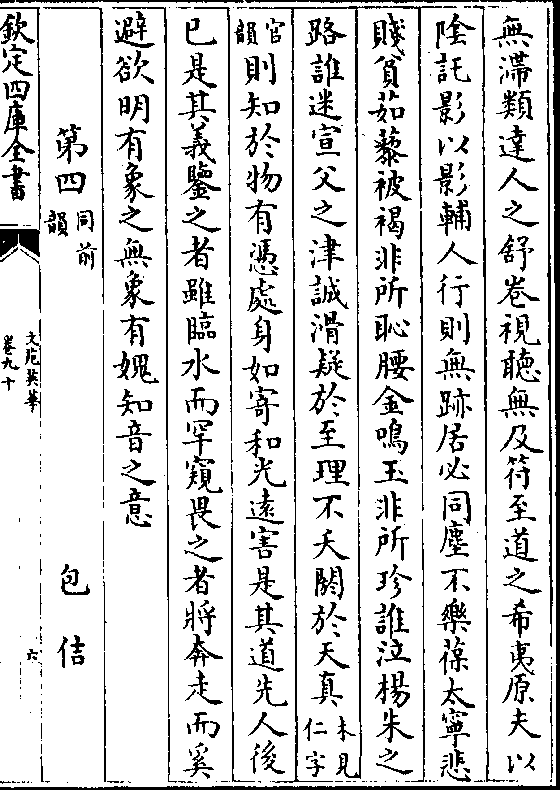 無滯類達人之舒卷視聽無及符至道之希夷原夫以
陰託影以影輔人行則無跡居必同塵不樂葆太寧悲
賤貧茹藜被褐非所恥腰金鳴玉非所珍誰泣楊朱之
路誰迷宣父之津誠滑疑於至理不夭閼於天真未見仁字
官韻則知於物有憑處身如寄和光遠害是其道先人後
已是其義鑒之者雖臨水而罕窺畏之者將奔走而奚
避欲明有象之無象有媿知音之意
第四同前韻 包佶
欽定四庫全書
文苑英華
卷九十
六